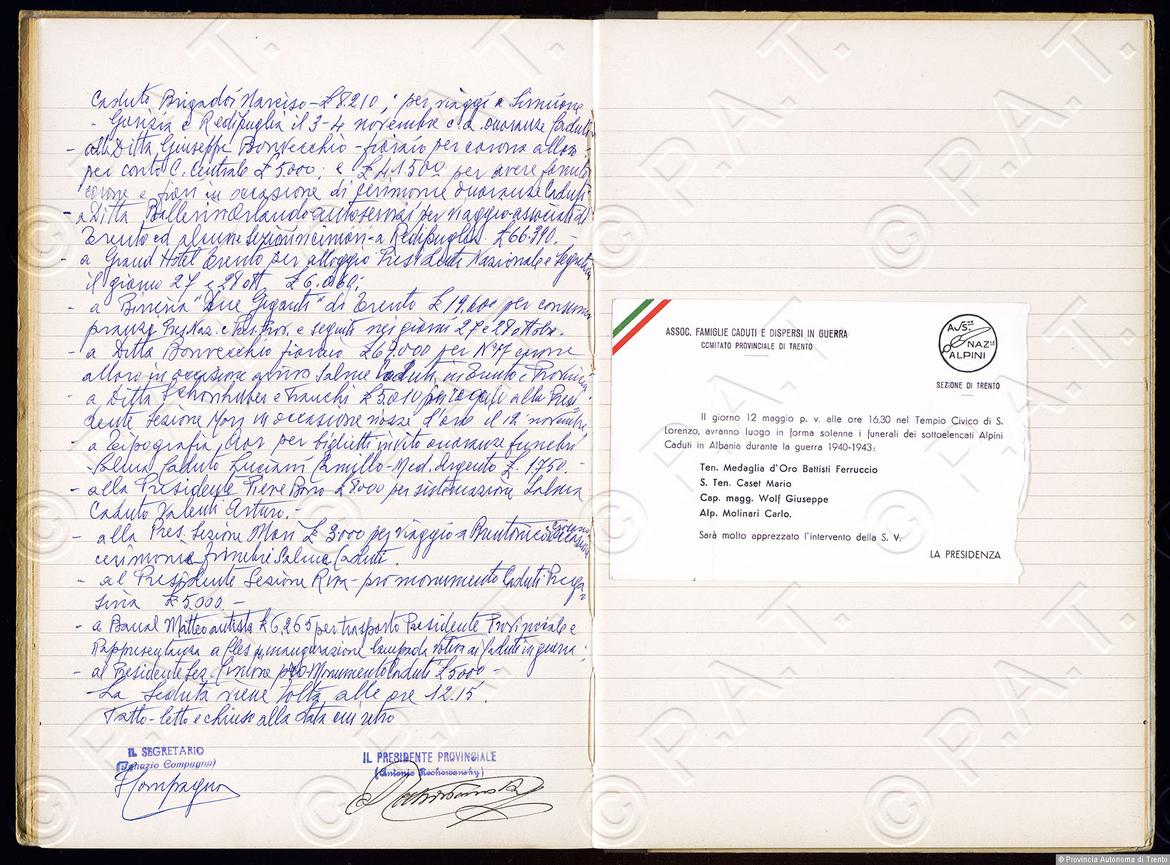 Caduto Brigadoi Narciso - £ 8210; per viaggi a Simeone
- Gorizia e Redipuglia il 3-4 novembre c.a. onoranze Caduti
- alla Ditta Giuseppe Bonvecchio - fioraio per corona alloro
per conto C. Centrale £ 5.000; e £ 41.500 per avere fornito
corone e fiori in occasione di cerimonie onoranze Caduti
- a Ditta Ballerin Orlando autoservizi per viaggio associati di
Trento ed alcune Sezioni a Redipuglia £ 66.390. -
- a Grand Hotel Trento per alloggio Presidente Nazionale e
il giorno 27 e 28 ott £ 6.060;
- a Birreria "Due Giganti" di Trento £ 19.600 per
pranzi Pres. Naz. e Pres. Prov. e seguito nei giorni 27 e 28 ottobre.
- a Ditta Bonvecchio fioraio £ 67.000 per N° 17 corone
alloro in occasione arrivo Salme Caduti in Trento e Provincia
- a Ditta e Franchi £ 5.010 per regali alla Presi
dente Sezione Mori in occasione nozze d'oro il 12 novembre
- a Tipografia Aor per biglietti invito onoranze funebri
Salma Caduto Luciani Camillo - Med. Argento £ 1.750. -
- alla Presidente Pieve Bono £ 8000 per sistemazione Salma
Caduto Valenti Arturo. -
- alla Pres. Sezione Mori £ 3000 per viaggio a Brentonico
cerimonia funebri Salme Caduti.
- al Presidente Sezione Riva - pro monumento Caduti Prega=
sina £ 5.000. -
- a Banal Matteo autista £ 6.265 per trasporto Presidente Provinciale e
Rappresentanza a Cles inaugurazione lampada votiva ai Caduti in guerra;
- al Presidente Sez. pro Monumento Caduti £ 5000 -
- La Seduta viene tolta alle ore 12.15.
Fatto - letto e chiuso alla data cui retro
IL SEGRETARIO
(Ignazio Compagno)
Compagno
IL PRESIDENTE PROVINCIALE
(Antonio Rechowansky)
ASSOC. FAMIGLIE CADUTI E DISPERSI IN GUERRA
COMITATO PROVINCIALE DI TRENTO
ASS.NE NAZ.LE ALPINI
SEZIONE DI TRENTO
Il giorno 12 maggio p. v. alle ore 16.30 nel Tempio Civico di S.
Lorenzo, avranno luogo in forma solenne i funerali dei sottoelencati Alpini
Caduti in Albania durante la guerra 1940-1943:
Ten. Medaglia d'Oro Battisti Ferruccio
S. Ten. Caset Mario
Cap. magg. Wolf Giuseppe
Alp. Molinari Carlo.
Sarà molto apprezzato l'intervento della S. V.
LA PRESIDENZA
© P.A.T.
© Provincia Autonoma di Trento